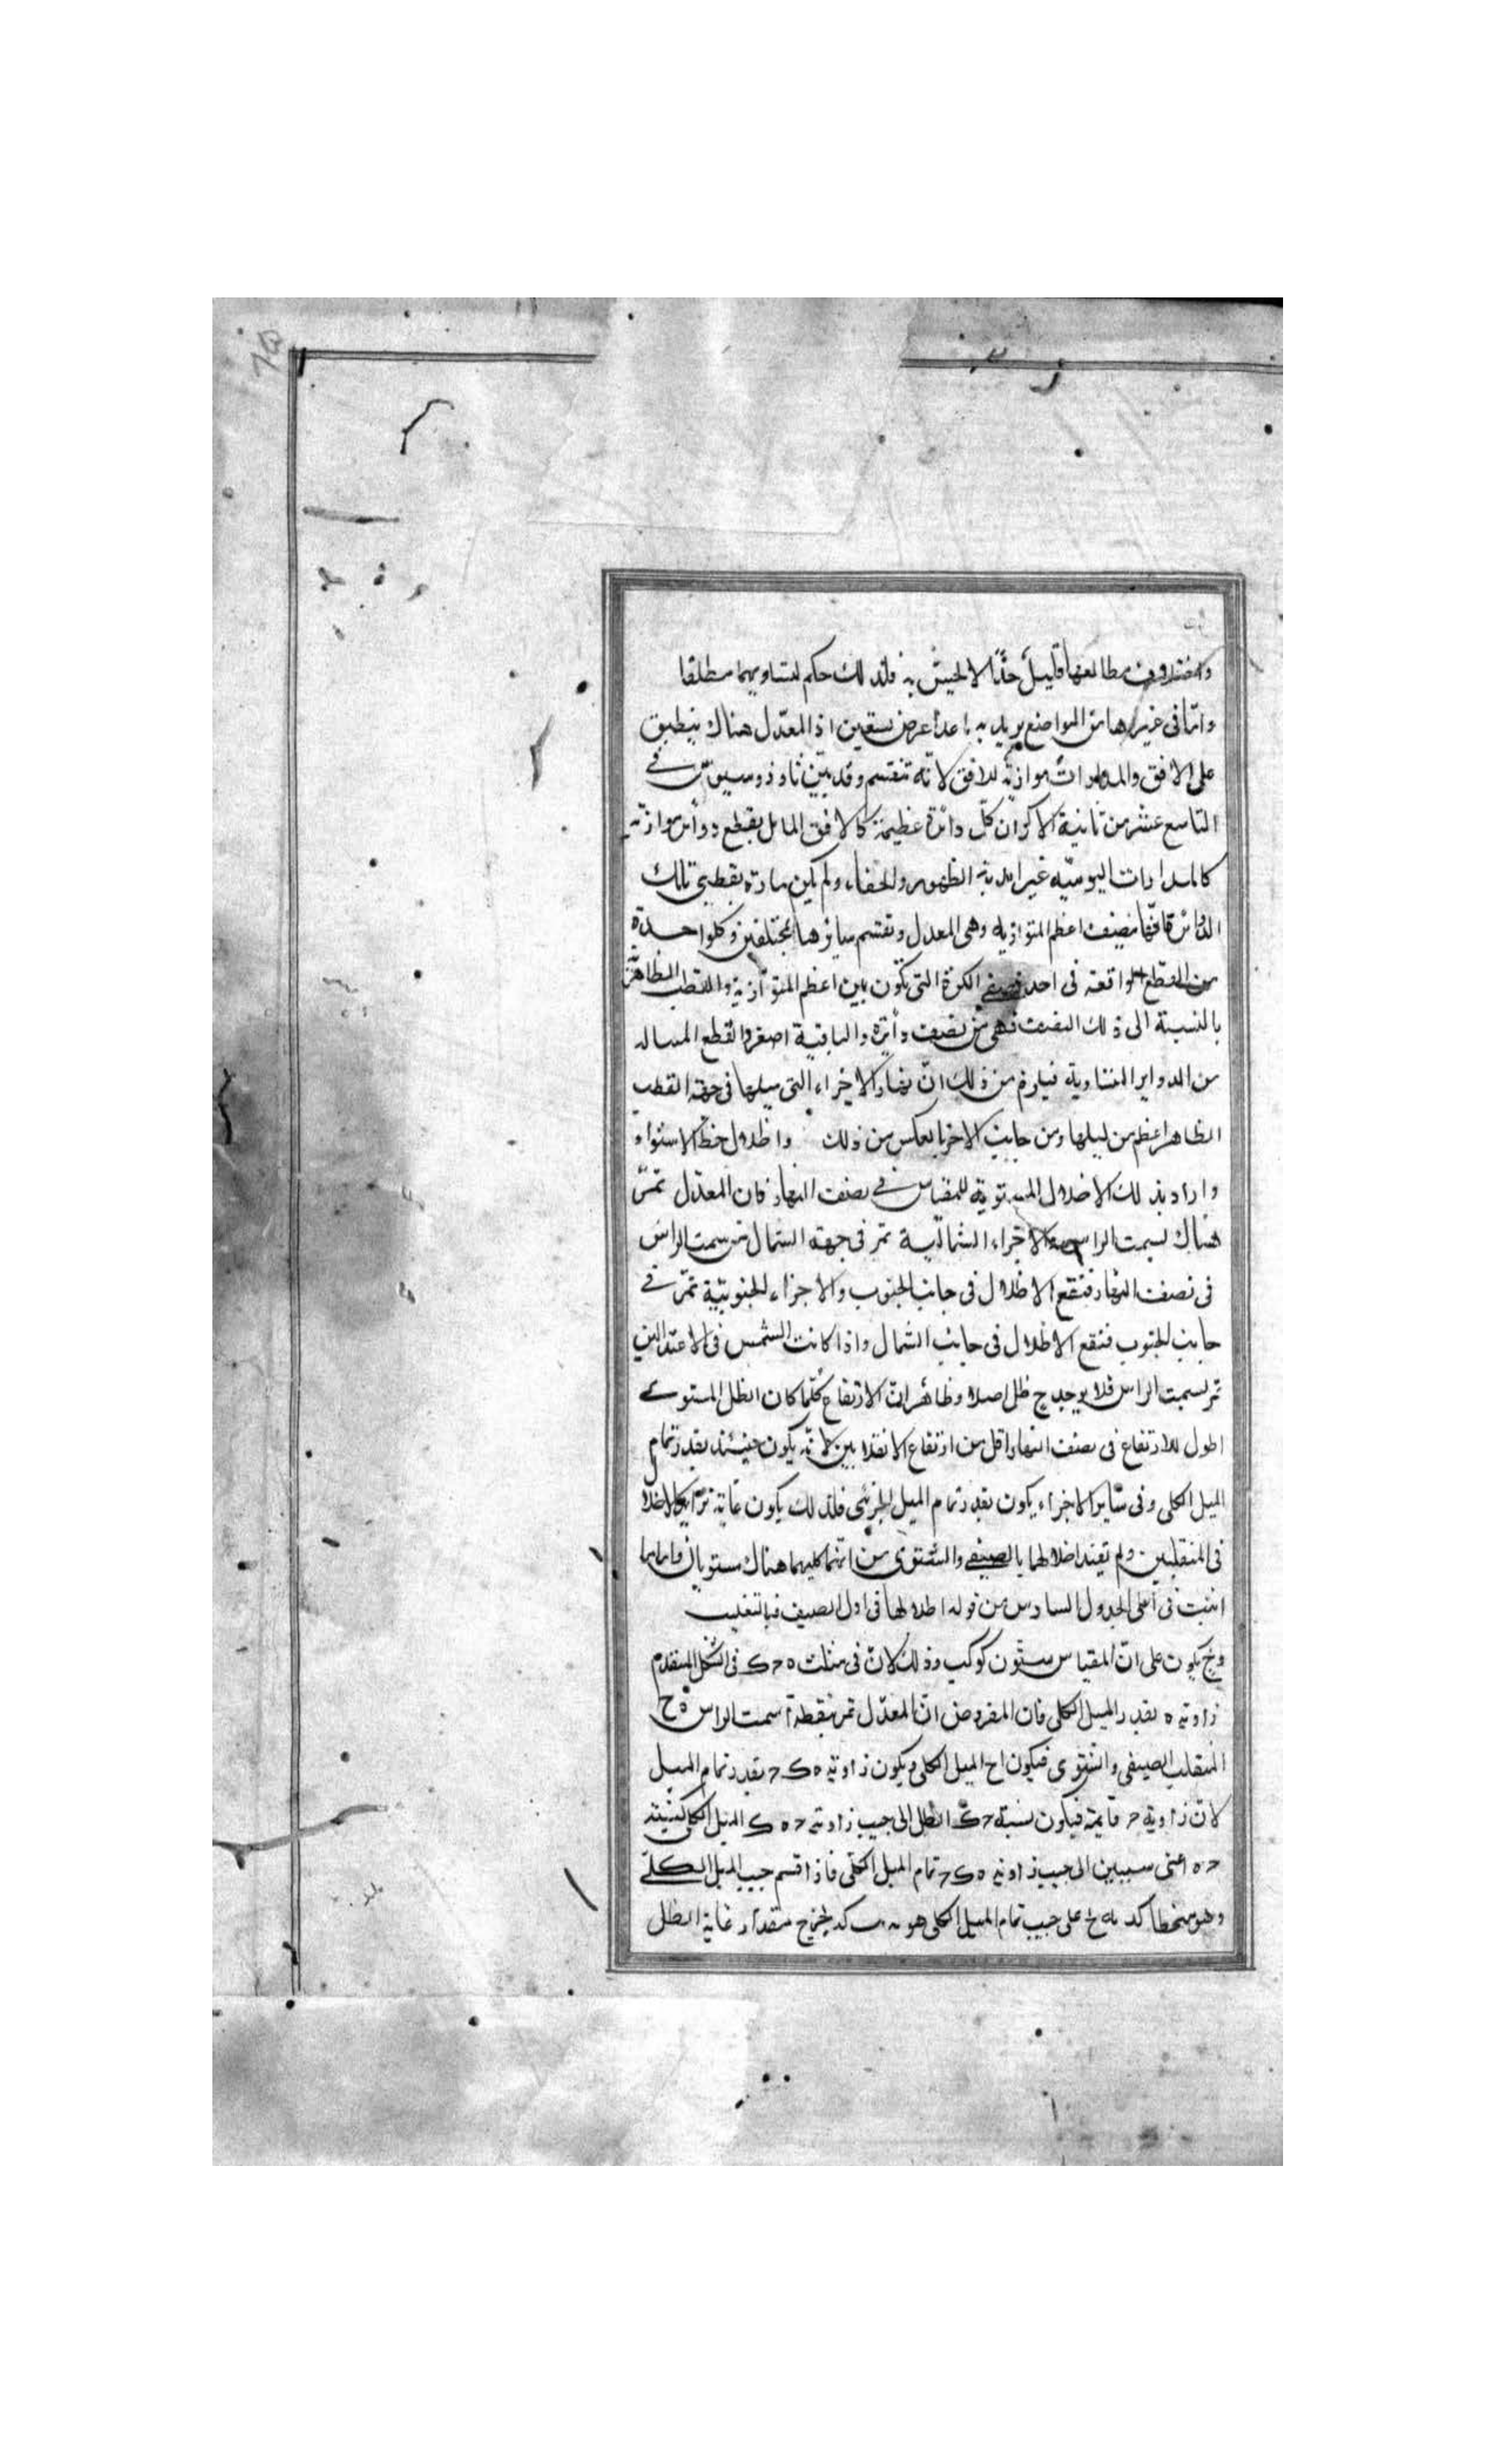 واختلاف مطالعها قليل جدّا لا يحسّ به فلذلك حكم بتساويهما مطلقا
وامّا فى غيرها من المواضع يريد به ما عدا عرض تسعين اذ المعدّل هناك ينطبق
على الافق والمدارات موازية للافق لانه تنقسم وقد بيّن ثاوذوسيوس فى
التاسع عشر من ثانية الاكر ان كلّ دائرة عظيمة كالافق المايل يقطع دوائر موازية
كالمدارات اليوميّه غير ابدية الظهور والخفاء ولم يكن مارة بقطبى تلك
الدوائر فانها تنصف اعظم المتوازيه وهى المعدل وتقسم سايرها بمختلفين وكلّ واحدة
من القطع الواقعة فى احد نصفى الكرة التى تكون بين اعظم المتوازية والقطب الظاهر
بالنسبة الى ذلك النصف فهى من نصف دائرة والباقية اصغر والقطع المبادله
من الدواير المتساوية فيلزم من ذلك انّ نهار الاجزاء التى ميلها فى جهة القطب
الظاهر اعظم من ليلها ومن جانب الاخر بالعكس من ذلك واظلال خط الاستواء
واراد بذلك الاظلال المستوية للمقياس فى نصف النهار فان المعدّل تمرّ
هناك بسمت الراس والاجزاء الشماليّة تمرّ فى جهة الشمال من سمت الراس
فى نصف النهار فتقع الاظلال فى جانب الجنوب والاجزاء الجنوبيّة تمرّ فى
جانب الجنوب فتقع الاظلال فى جانب الشمال واذا كانت الشمس فى الاعتدالين
تمر بسمت الراس فلا يوجد ح ظل اصلا وظاهر انّ الارتفاع كلّما كان الظل المستوى
اطول للارتفاع فى نصف النهار اقل من ارتفاع الانقلابين لانّه يكون حينئذ بقدر تمام
الميل الكلى وفى ساير الاجزاء يكون بقدر تمام الميل الجزئى فلذلك يكون غاية تزايد الاظلال
فى المنقلبين ولم تقيد اظلالهما بالصيفى والشتوى من انهما كليهما هناك مستويان واما ما
اثبت فى اعلى الجدول السادس من قوله اظلالها فى اول الصيف فبالتغليب
وح يكون على انّ المقياس ستّون كوكب وذلك لانّ فى مثلث ه ح ك فى الشكل المتقدم
زاوية ه بقدر الميل الكلى فان المفروض انّ المعدّل تمر بنقطة آ سمت الراس ه ح
المنقلب الصيفى والشتوى فيكون اح الميل الكلى ويكون زاوية ه ك ح بقدر تمام الميل
لانّ زاوية ح قايمة فيكون نسبة ح ك الظل الى جيب زاوية ح ه ك الميل الكلى كنسبة
ح ه اعنى ستين الى جيب زاوية ه ك ح تمام الميل الكلى فاذا قسم جيب الميل الكلى
وهو منحطا كد على جيب تمام الميل الكلى هو نه ب كد يخرج مقدار غاية الظل